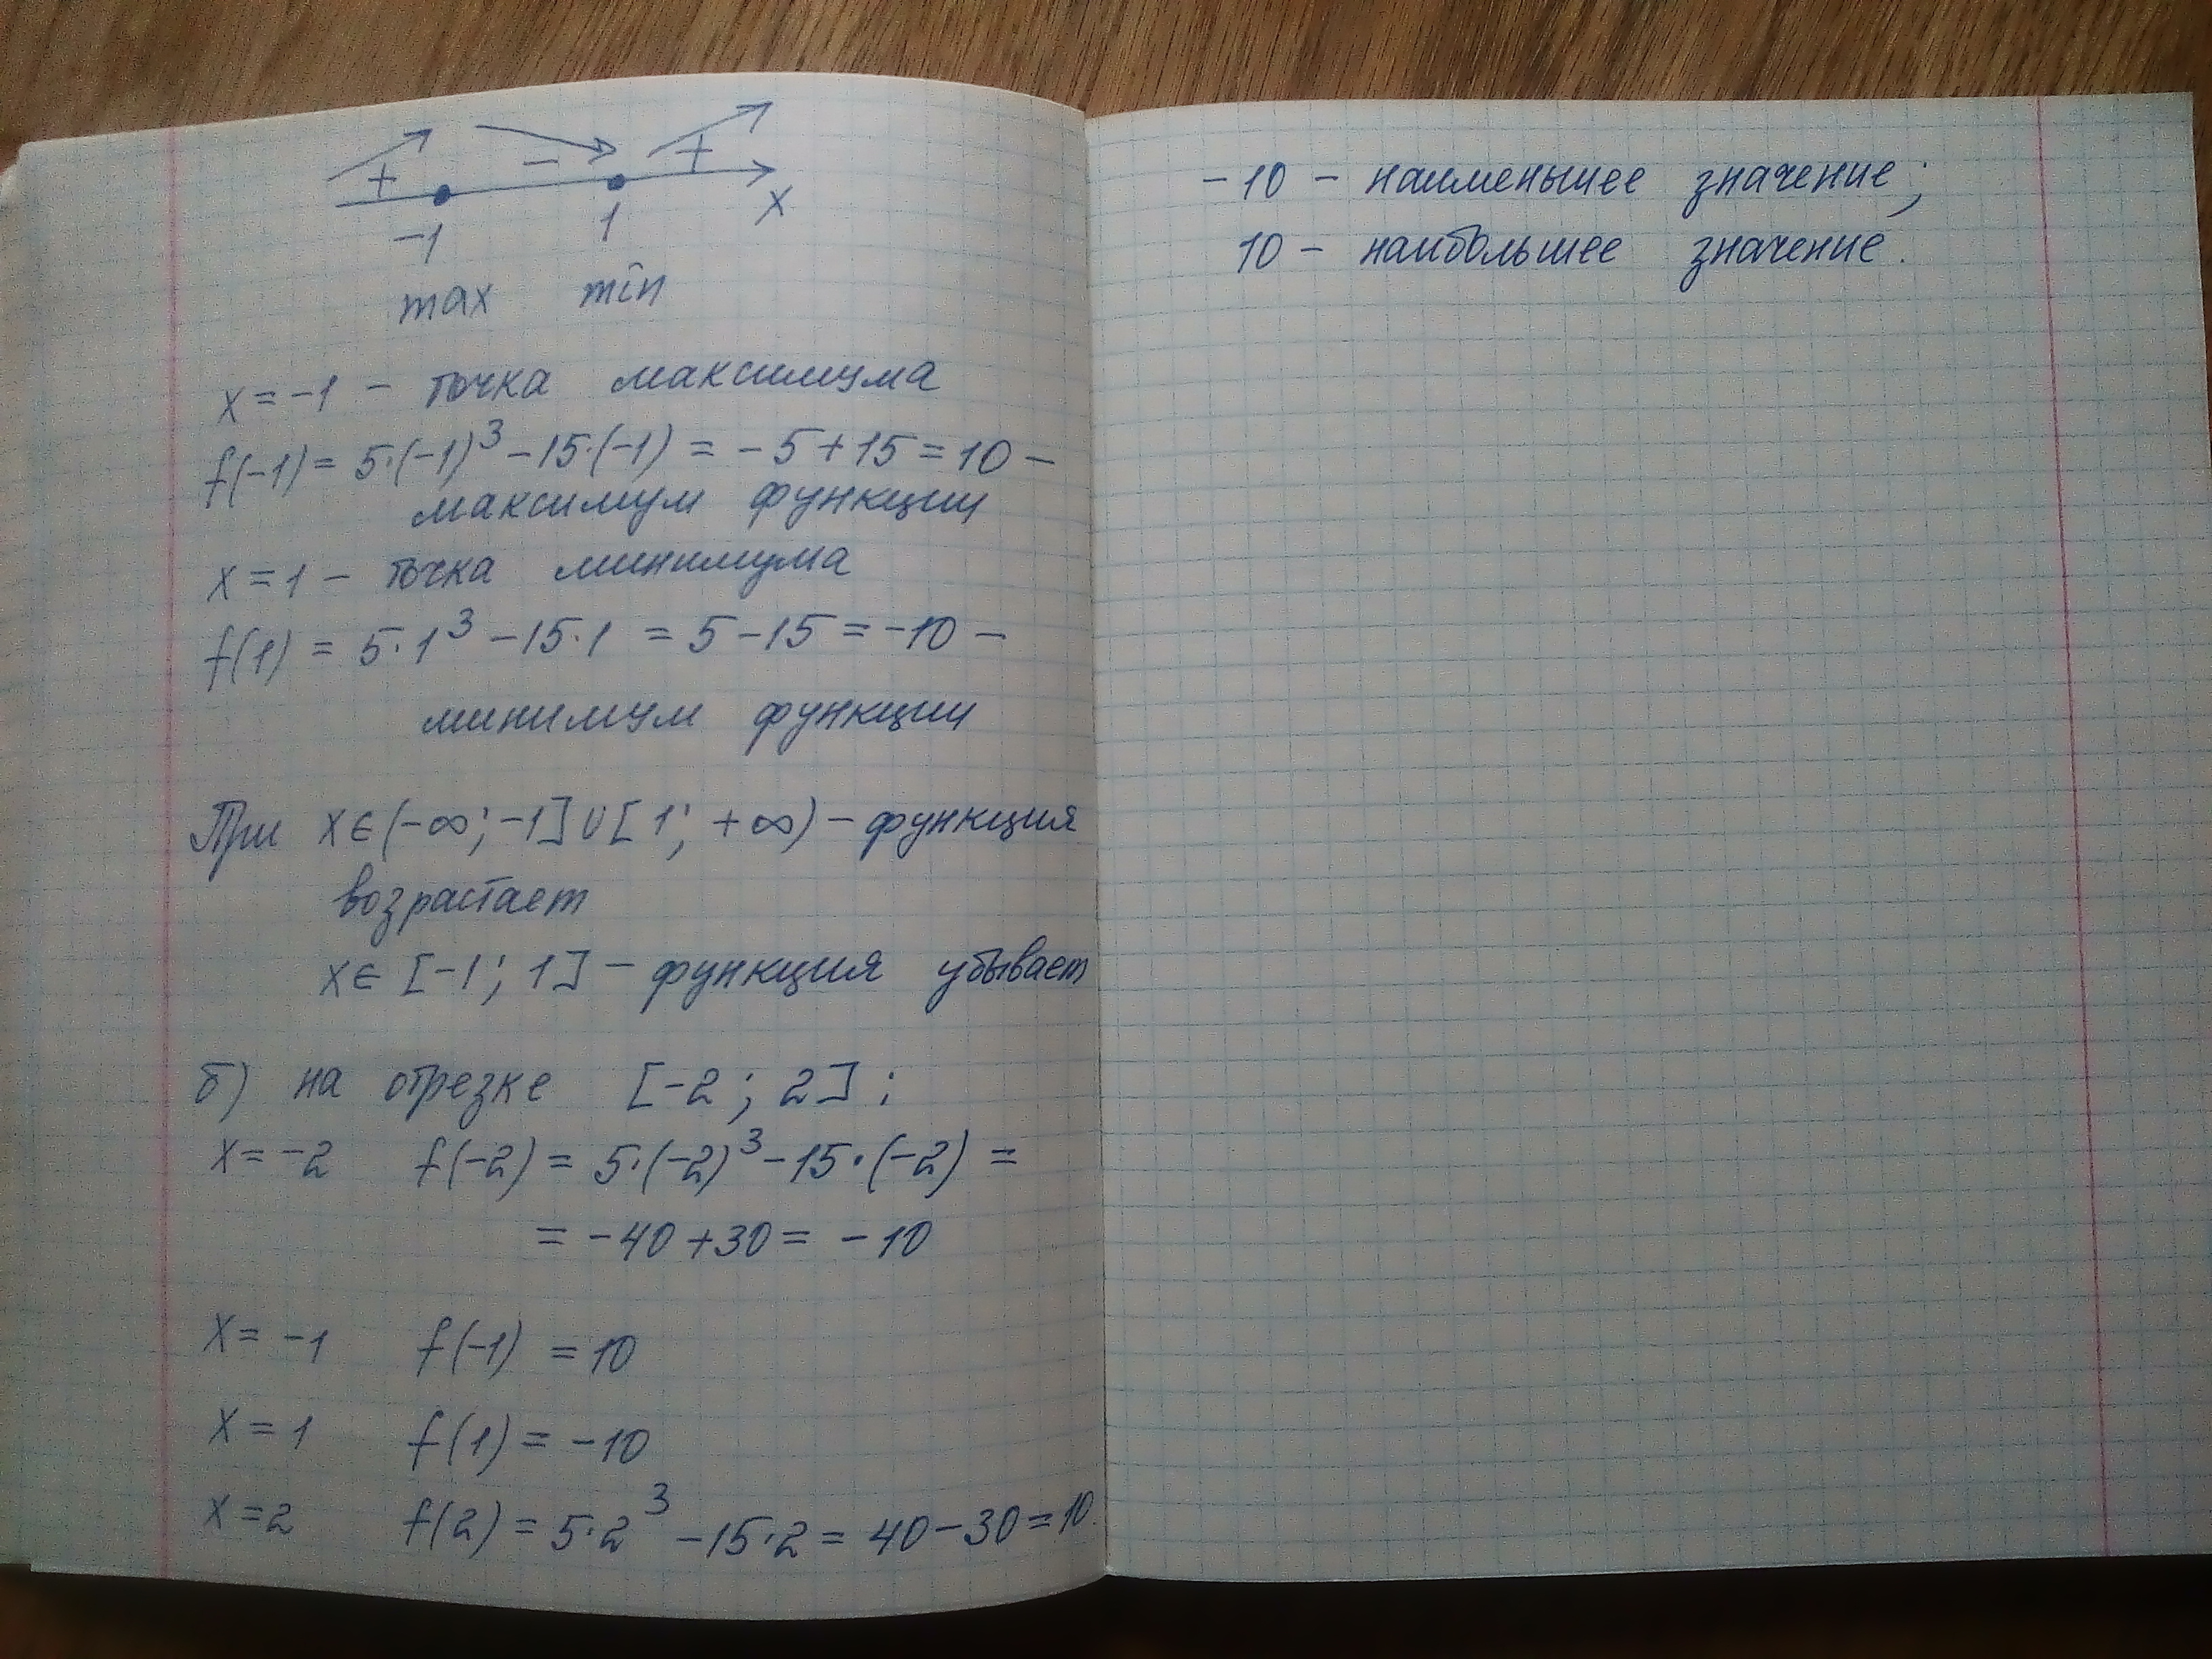 + − +
-1 1 x
max min
x = -1 - точка максимума
f(-1) = 5·(-1)³ - 15·(-1) = -5 + 15 = 10 -
максимум функции
x = 1 - точка минимума
f(1) = 5·1³ - 15·1 = 5 - 15 = -10 -
минимум функции
При x ∈ (-∞; -1] ∪ [1; +∞) - функция
возрастает
x ∈ [-1; 1] - функция убывает
б) на отрезке [-2; 2]:
x = -2 f(-2) = 5·(-2)³ - 15·(-2) =
= -40 + 30 = -10
x = -1 f(-1) = 10
x = 1 f(1) = -10
x = 2 f(2) = 5·2³ - 15·2 = 40 - 30 = 10.
-10 - наименьшее значение;
10 - наибольшее значение.